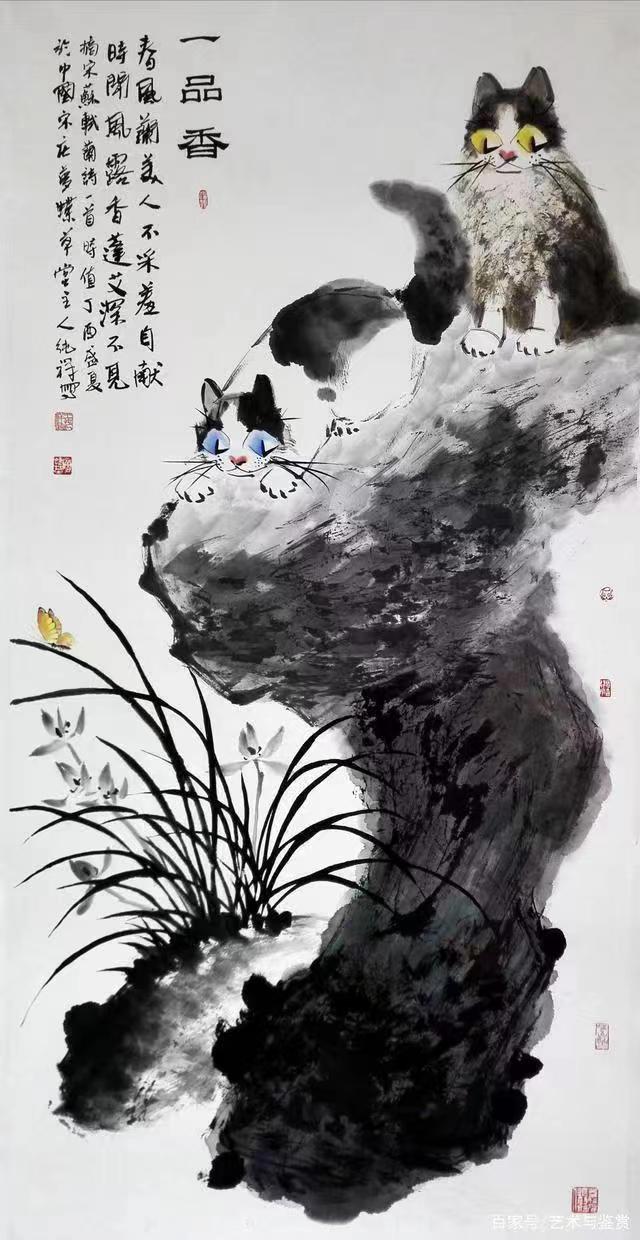 一品香
春風蘭美人不采羞自献
時聞風露香蓬艾深不見
摘宋蘇軾蘭詩一首時值丁酉盛夏
於中國宋庄夢蝶草堂主人純祥寫
百家号/艺术与鉴赏